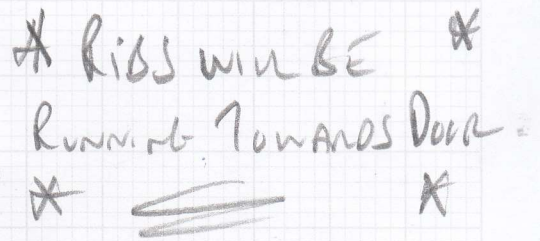 * RIBS WILL BE *
RUNNING TOWARDS DOOR.
* *